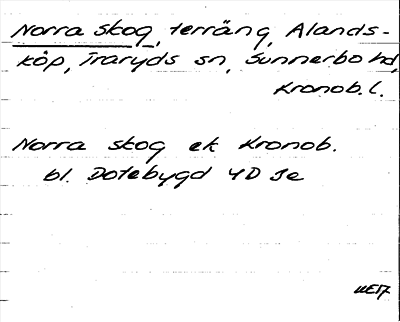 Norra skog, terräng, Ålands-
köp, Traryds sn, Sunnerbo hd,
Kronob. l.
Norra skog ek Kronob.
bl. Dotebygd 4D Je